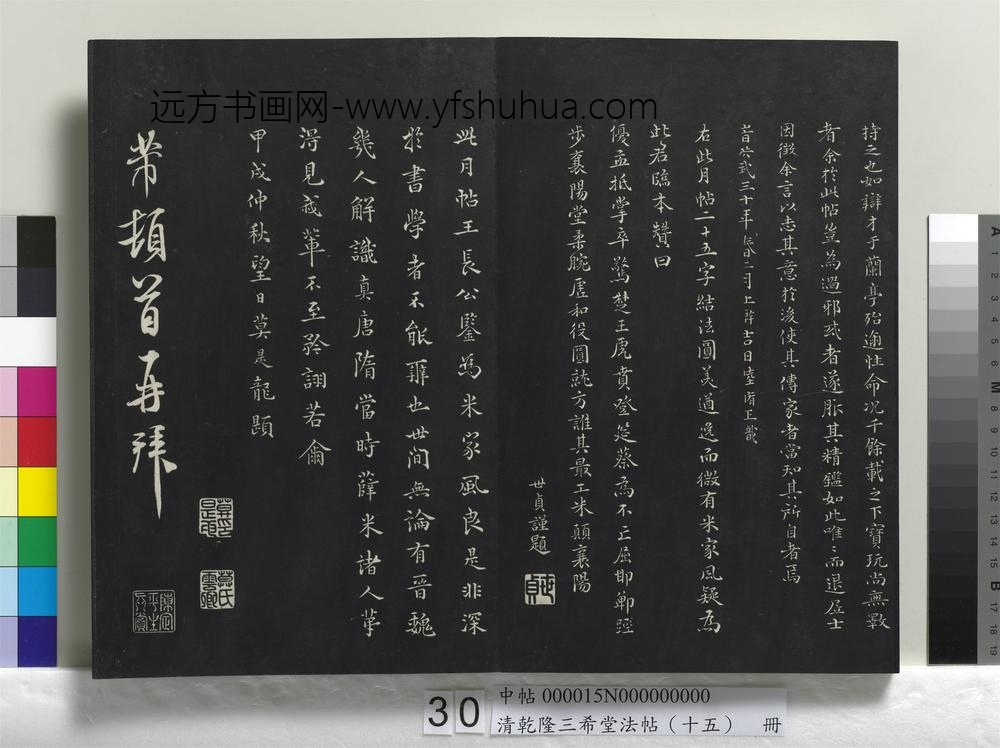 远方书画网-www.yfshuhua.com
持之也如辯才于蘭亭殆逾性命况千餘載之下寶玩尚無斁
者余於此帖豈為過邪或者遂服其精鑑如此唯唯而退居士
因徵余言以志其意於後使其傳家者當知其所自者焉
旹洪武三十年二月上澣吉日
右此月帖二十五字結法圓美遒逸而微有米家風疑為
此君臨本贊曰
優孟抵掌卒驚楚王虎賁登筵蔡為不亡屈即鄣踁
步襄陽堂柔腕虛和役圓就方誰其最工米顛襄陽
世貞謹題
世貞
此月帖王長公鑒為米家風良是非深
於書學者不能辨也世間無論有晉魏
幾人解識真唐隋當時薛米諸人芾
得見戒輩不至矜詡若爾
甲戌仲秋望日莫是龍題
芾頓首再拜
莫氏雲卿
30
中帖 000015N000000000
清乾隆三希堂法帖（十五） 冊
A 1 2 3 4 5 6 M 8 9 10 11 12 13 14 15 B 17 18 19